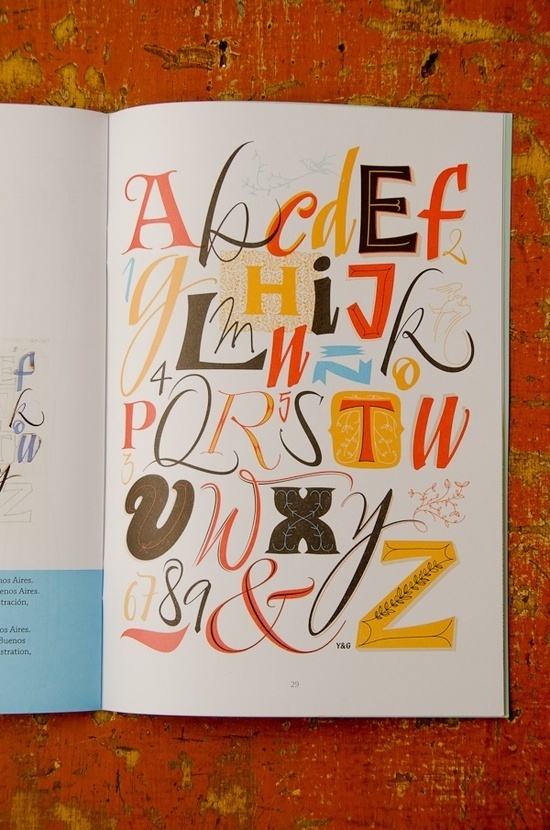 f
k
o u
y
Z
nos Aires.
enos Aires.
stración,
os Aires.
Buenos
stration,
A b c d E f 2
1 g H i J k
L m n Ñ o
4
P Q R 5 S T u
3
v W X y
6 7 8 9 & Z
Y&G
29